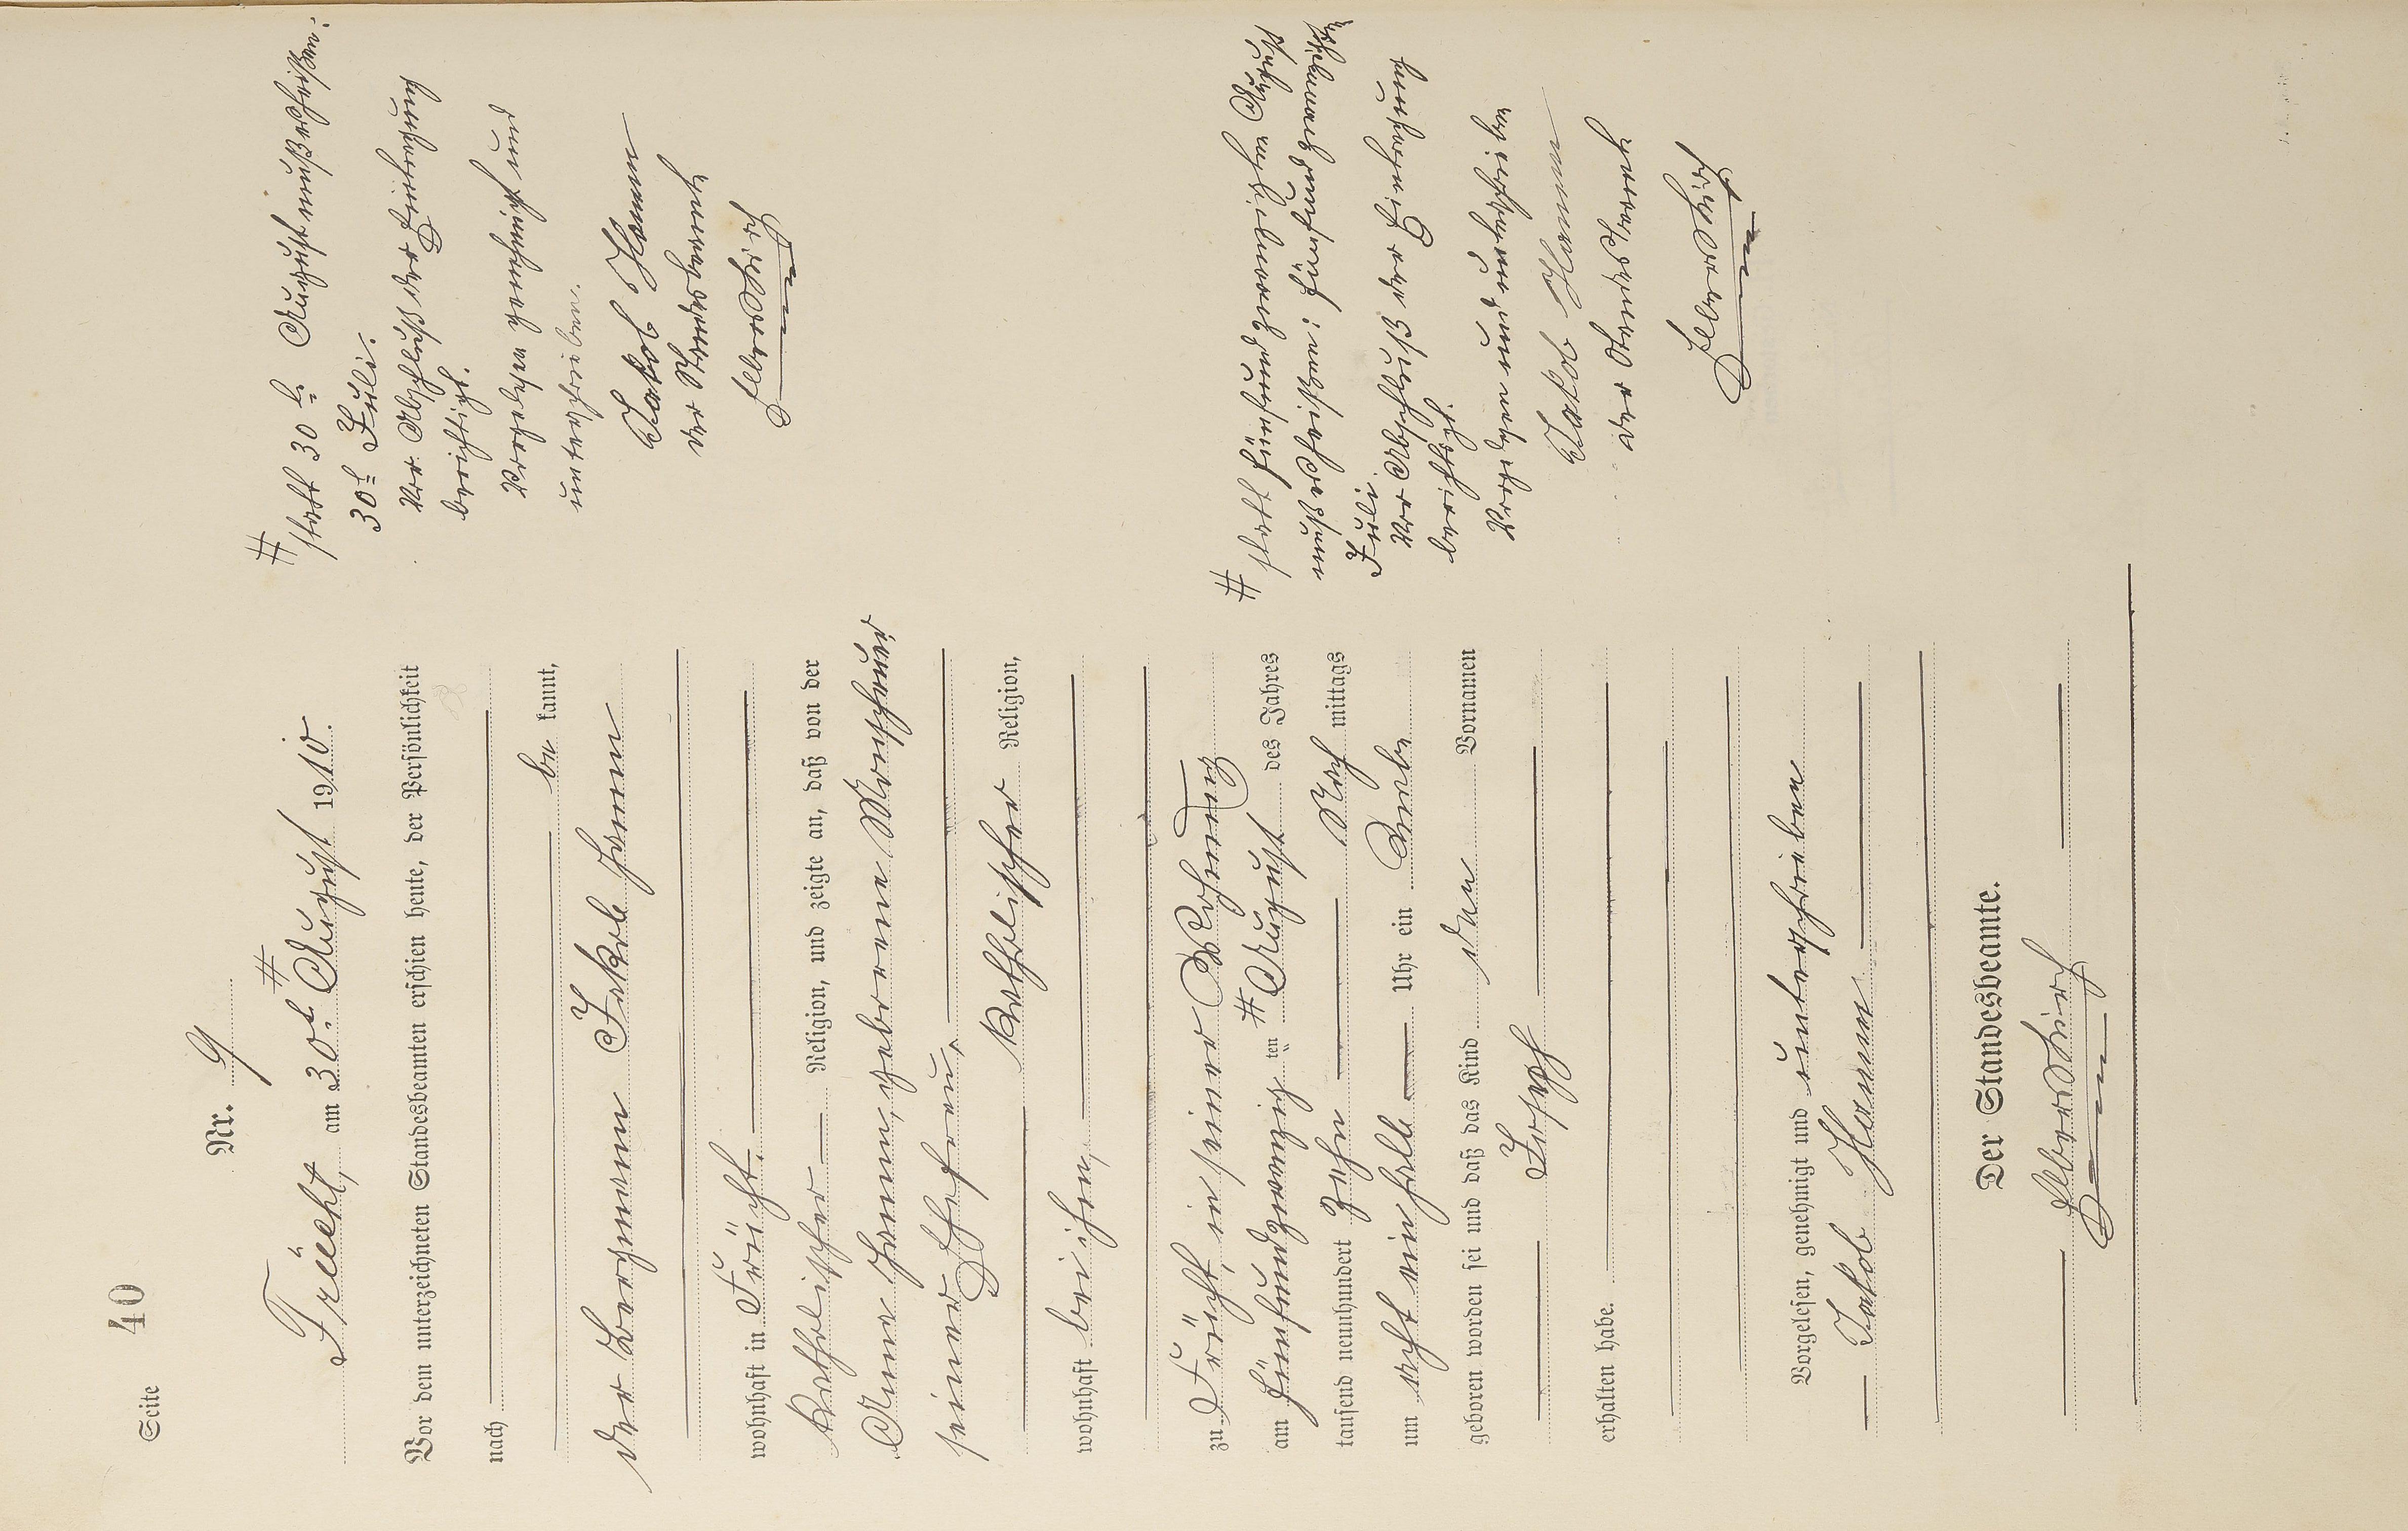 Seite 40
Nr. 9
Frücht, am 30t. # August 1910.
Vor dem unterzeichneten Standesbeamten erschien heute, der Persönlichkeit
nach
be kannt,
der Bergmann Jakob Hamm
wohnhaft in Frücht.
katholischer Religion, und zeigte an, daß von der
Anna Hamm, geborene
seiner Ehefrau,
katholischer Religion,
wohnhaft bei ihm,
zu Frücht, in seiner Wohnung
am fünfundzwanzig ten # August des Jahres
tausend neunhundert zehn Nach mittags
um acht ein halb Uhr ein Knabe
geboren worden sei und daß das Kind den Vornamen
Joseph
erhalten habe.
Vorgelesen, genehmigt und unterschrieben
Jakob Hamm
Der Standesbeamte.
# statt 30t. August muß es heißen:
30t. Juli.
Vor Abschluß der Eintragung
berichtigt.
Vorgelesen genehmigt und
unterschrieben.
Jakob Hamm
der Standesbeamte
# statt fünfundzwanzigsten August
muß es heißen: fünfundzwanzigsten
Juli
Vor Abschluß der Eintragung
berichtigt.
Vorgelesen und unterschrieben
Jakob Hamm
der Standesbeamte